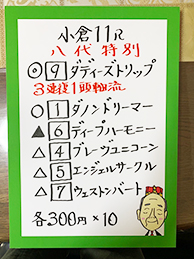 小倉11R
八代特別
◎9ダディーズトリップ
3連複1頭軸流
○1ダノンドリーマー
▲6ディープハーモニー
△4ブレーヴユニコーン
△5エンジェルサークル
△7ウェストンバート
各300円×10